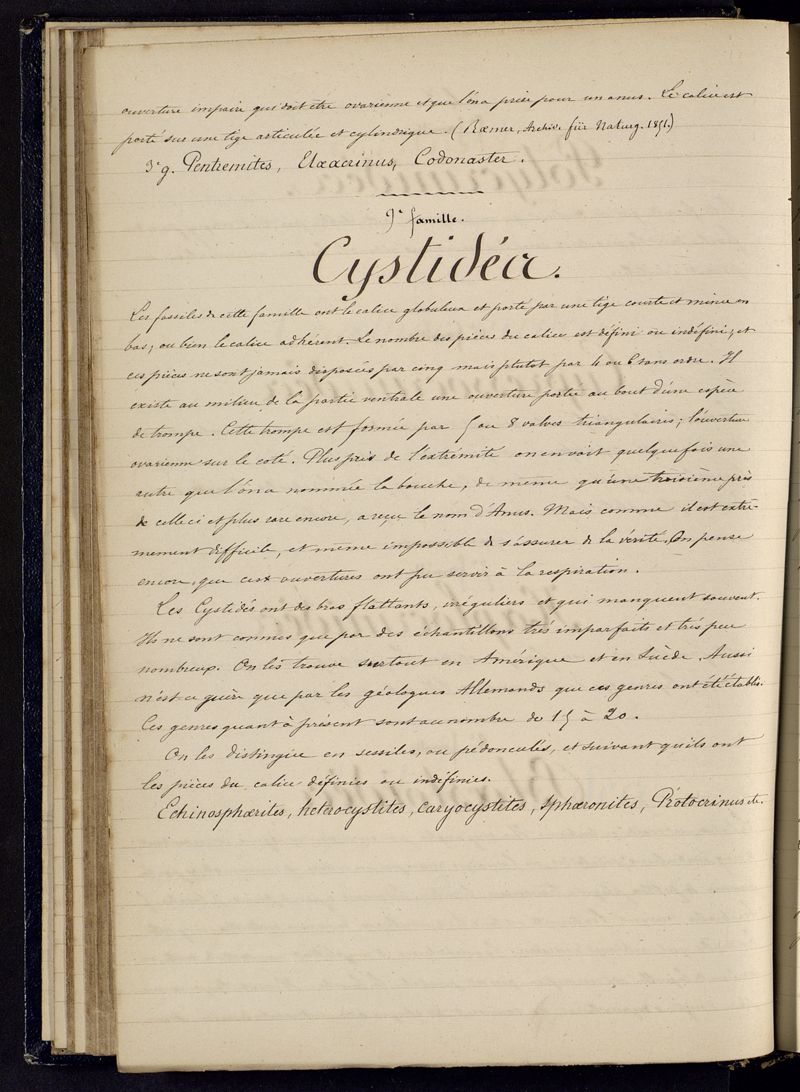 ouverture impaire qui doit être ovarienne et que l'on a prise pour un anus. Le calice est
porté sur une tige articulée et cylindrique. (Rœmer, Archiv. für Naturg. 1851.)
3 g. Pentremites, Elæacrinus, Codonaster.
9e famille.
Cystidéa.
Les fossiles de cette famille ont le calice globuleux et porté par une tige courte et mince en
bas, ou bien le calice adhérent. Le nombre des pièces du calice est défini ou indéfini, et
ces pièces ne sont jamais disposées par cinq mais plutot par 4 ou 6 sans ordre. Il
existe au milieu de la partie ventrale une ouverture portée au bout d'une espèce
de trompe. Cette trompe est formée par 5 ou 8 valves triangulaires; l'ouverture
ovarienne sur le coté. Plus près de l'extrémité on en voit quelquefois une
autre que l'on a nommée la bouche, de même qu'une troisième près
de celle ci et plus rare encore, a reçu le nom d'Anus. Mais comme il est extrê-
mement difficile, et même impossible de s'assurer de la vérité. On pense
encore, que ces ouvertures ont pu servir à la respiration.
Les Cystidés ont des bras flottants, irréguliers et qui manquent souvent.
Ils ne sont connus que par des échantillons très imparfaits et très peu
nombreux. On les trouve surtout en Amérique et en Suède. Aussi
n'est ce guère que par les géologues Allemands que ces genres ont été établis.
Ces genres quant à présent sont au nombre de 15 à 20.
On les distingue en sessiles, ou pédonculés, et suivant qu'ils ont
les pièces du calice définies ou indéfinies.
Echinosphærites, heterocystites, caryocystites, sphæronites, Protocrinus etc.